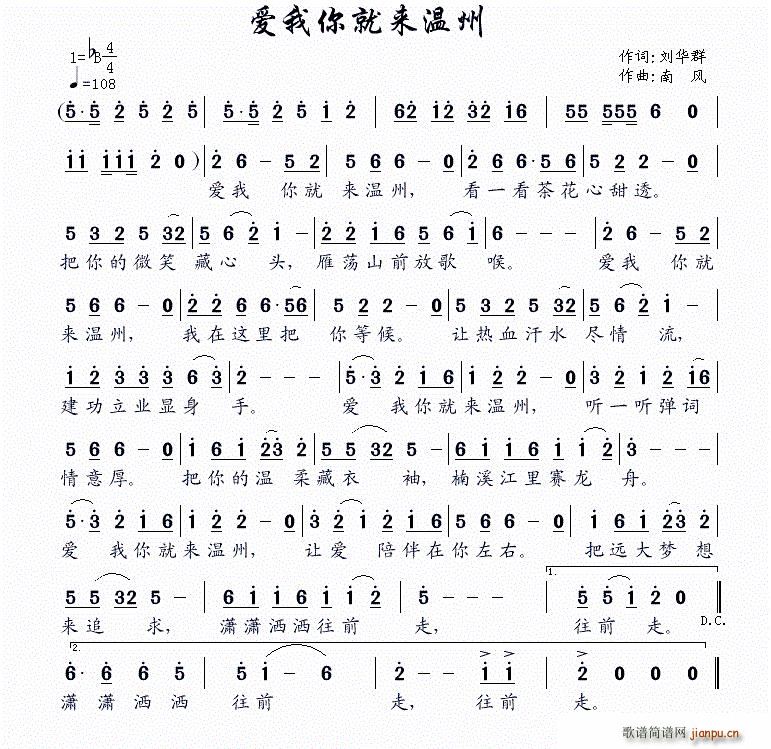 爱我你就来温州
1=♭B 4/4
♩=108
作词:刘华群
作曲:南 风
(5·5 2 5 2 5 | 5·5 2 5 1 2 | 62 12 32 16 | 55 555 6 0
11 111 2 0 ) | 2 6 - 5 2 | 5 6 6 - 0 | 2 6 6·5 6 | 5 2 2 - 0
爱我 你就 来温州, 看一看茶花心甜透。
5 3 2 5 32 | 5 6 2 1 - | 2 2 1 6 5 6 1 | 6 - - - | 2 6 - 5 2
把你的微笑 藏心 头, 雁荡山前放歌 喉。 爱我 你就
5 6 6 - 0 | 2 2 6 6·56 | 5 2 2 - 0 | 5 3 2 5 32 | 5 6 2 1 -
来温州, 我在这里把 你等候。 让热血汗水 尽情 流,
1 2 3 3 6 3 | 2 - - - | 5·3 2 1 6 | 1 2 2 - 0 | 2 1 2 2 16
建功立业显身 手。 爱 我你就来温州, 听一听弹词
5 6 6 - 0 | 1 6 1 23 2 | 5 5 32 5 - | 6 1 1 6 1 1 2 | 3 - -
情意厚。 把你的温 柔藏衣 袖, 楠溪江里赛龙 舟。
5·3 2 1 6 | 1 2 2 - 0 | 3 2 1 2 2 6 | 5 6 6 - 0 | 1 6 1 23 2
爱 我你就来温州, 让爱 陪伴在你左右。 把远大梦想
5 5 32 5 - | 6 1 1 6 1 1 2 | 5 - - - | 1. 5 5 1 2 0
D.C.
来追 求, 潇潇洒洒往前 走, 往前 走。
2. 6· 6 6 5 | 5 1 - 6 | 2 - - 1 1 | 2 0 0 0
潇 潇洒洒 往前 走, 往前 走。
歌谱简谱网
jianpu.cn